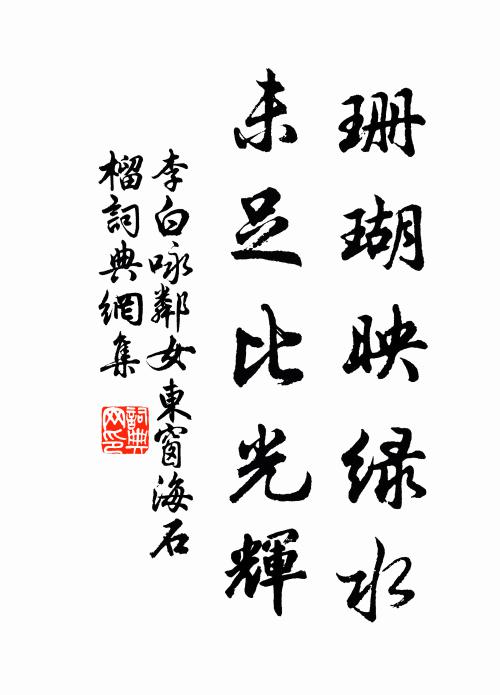 珊瑚映绿水
未足比光輝
李白咏鄰女東窗海石
榴詞典網集
詞典
网印